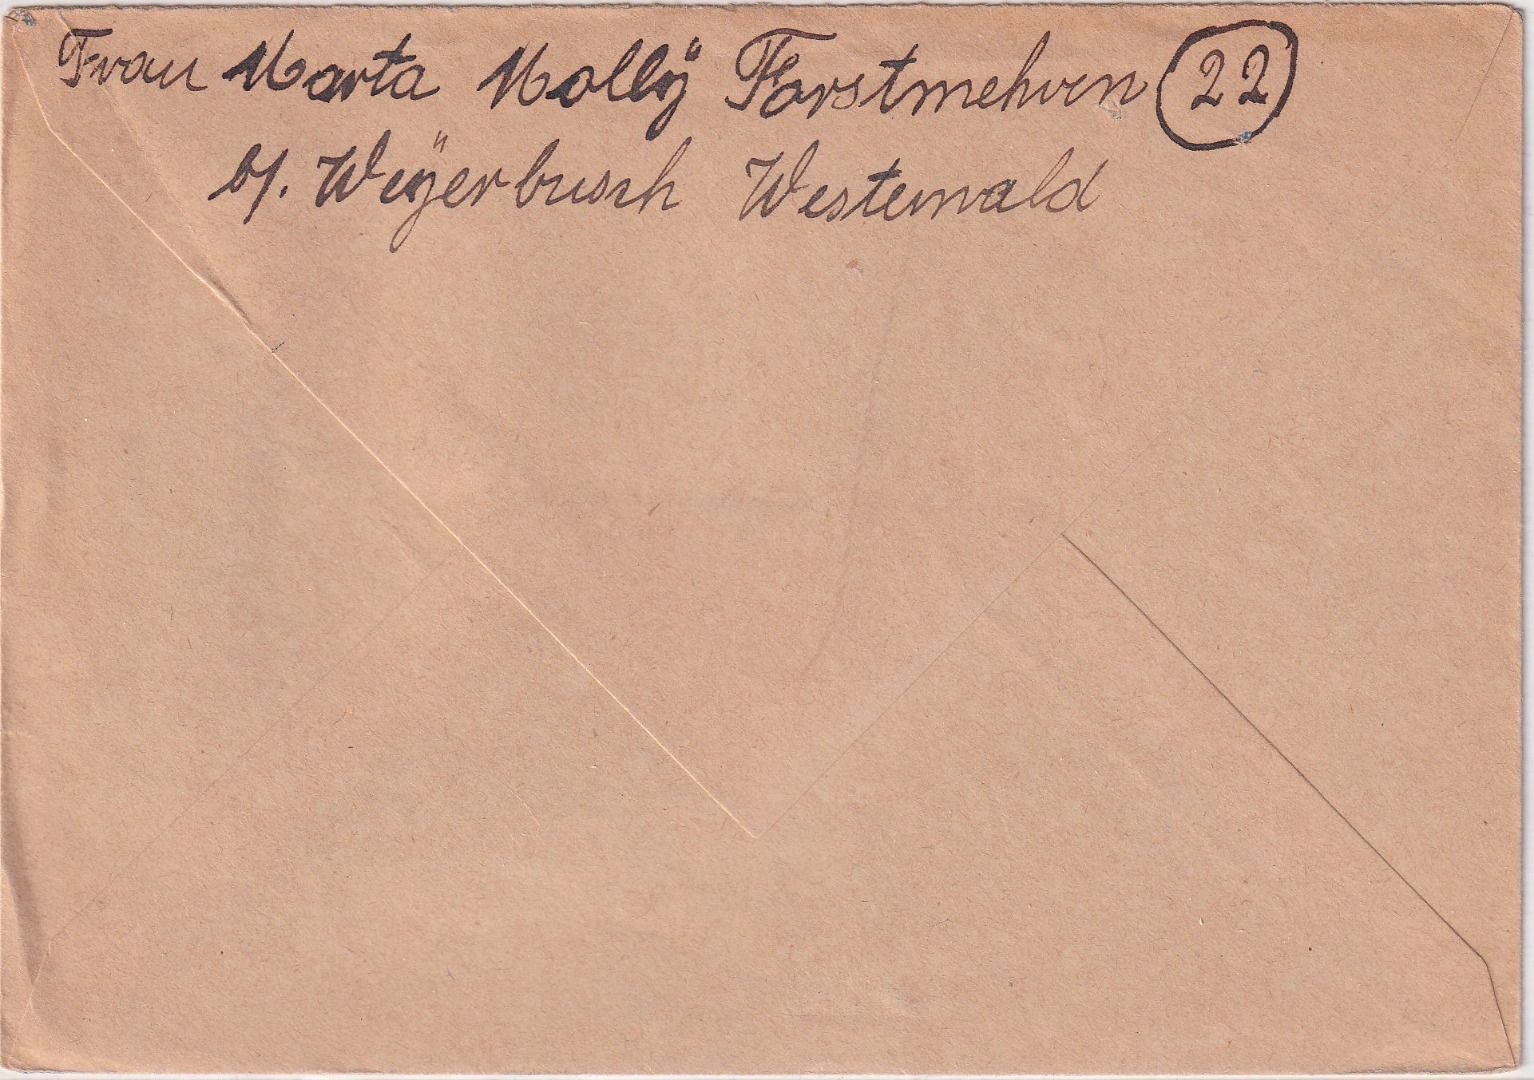 Frau Marta Mollÿ Forstmehren 22
b/. Weÿerbusch Westerwald